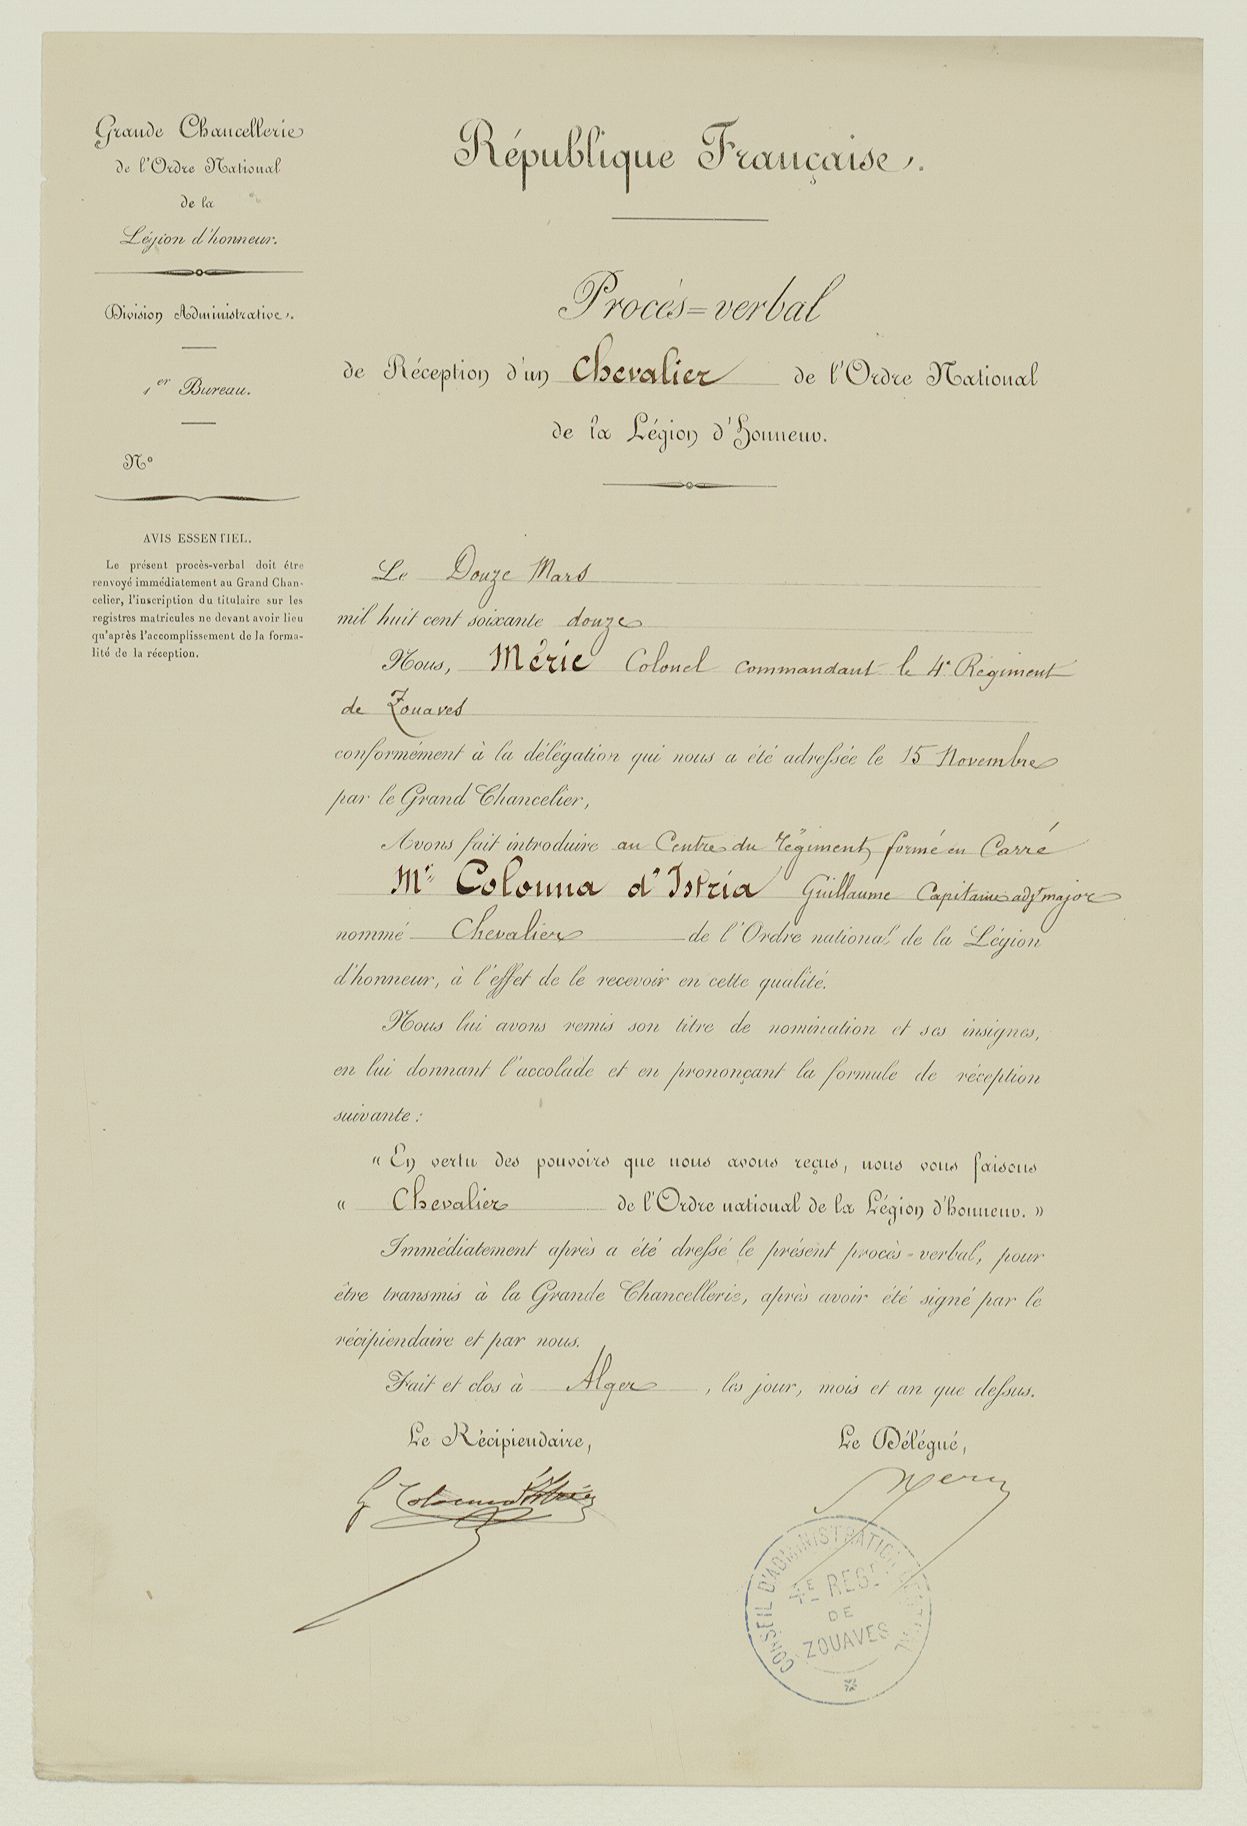 Grande Chancellerie
de l'Ordre National
de la
Légion d'honneur.
Division Administrative.
1er Bureau.
N°
AVIS ESSENTIEL.
Le présent procès-verbal doit être
renvoyé immédiatement au Grand Chan-
celier, l'inscription du titulaire sur les
registres matricules ne devant avoir lieu
qu'après l'accomplissement de la forma-
lité de la réception.
République Française.
Procès=verbal
de Réception d'un Chevalier de l'Ordre National
de la Légion d'honneur.
Le Douze Mars
mil huit cent soixante douze
Nous, Méric Colonel commandant le 4e Régiment
de Zouaves
conformément à la délégation qui nous a été adressée le 15 Novembre
par le Grand Chancelier,
Avons fait introduire au Centre du régiment, formé en Carré
Mr. Colonna d'Istria Guillaume Capitaine adjt major
nommé Chevalier de l'Ordre national de la Légion
d'honneur, à l'effet de le recevoir en cette qualité.
Nous lui avons remis son titre de nomination et ses insignes,
en lui donnant l'accolade et en prononçant la formule de réception
suivante :
« En vertu des pouvoirs que nous avons reçus, nous vous faisons
« Chevalier de l'Ordre national de la Légion d'honneur. »
Immédiatement après a été dressé le présent procès-verbal, pour
être transmis à la Grande Chancellerie, après avoir été signé par le
récipiendaire et par nous.
Fait et clos à Alger, les jour, mois et an que dessus.
Le Récipiendaire,
Le Délégué,
G Colonna d'Istria
Méric
CONSEIL D'ADMINISTRATION CENTRAL
4E REGT
DE
ZOUAVES